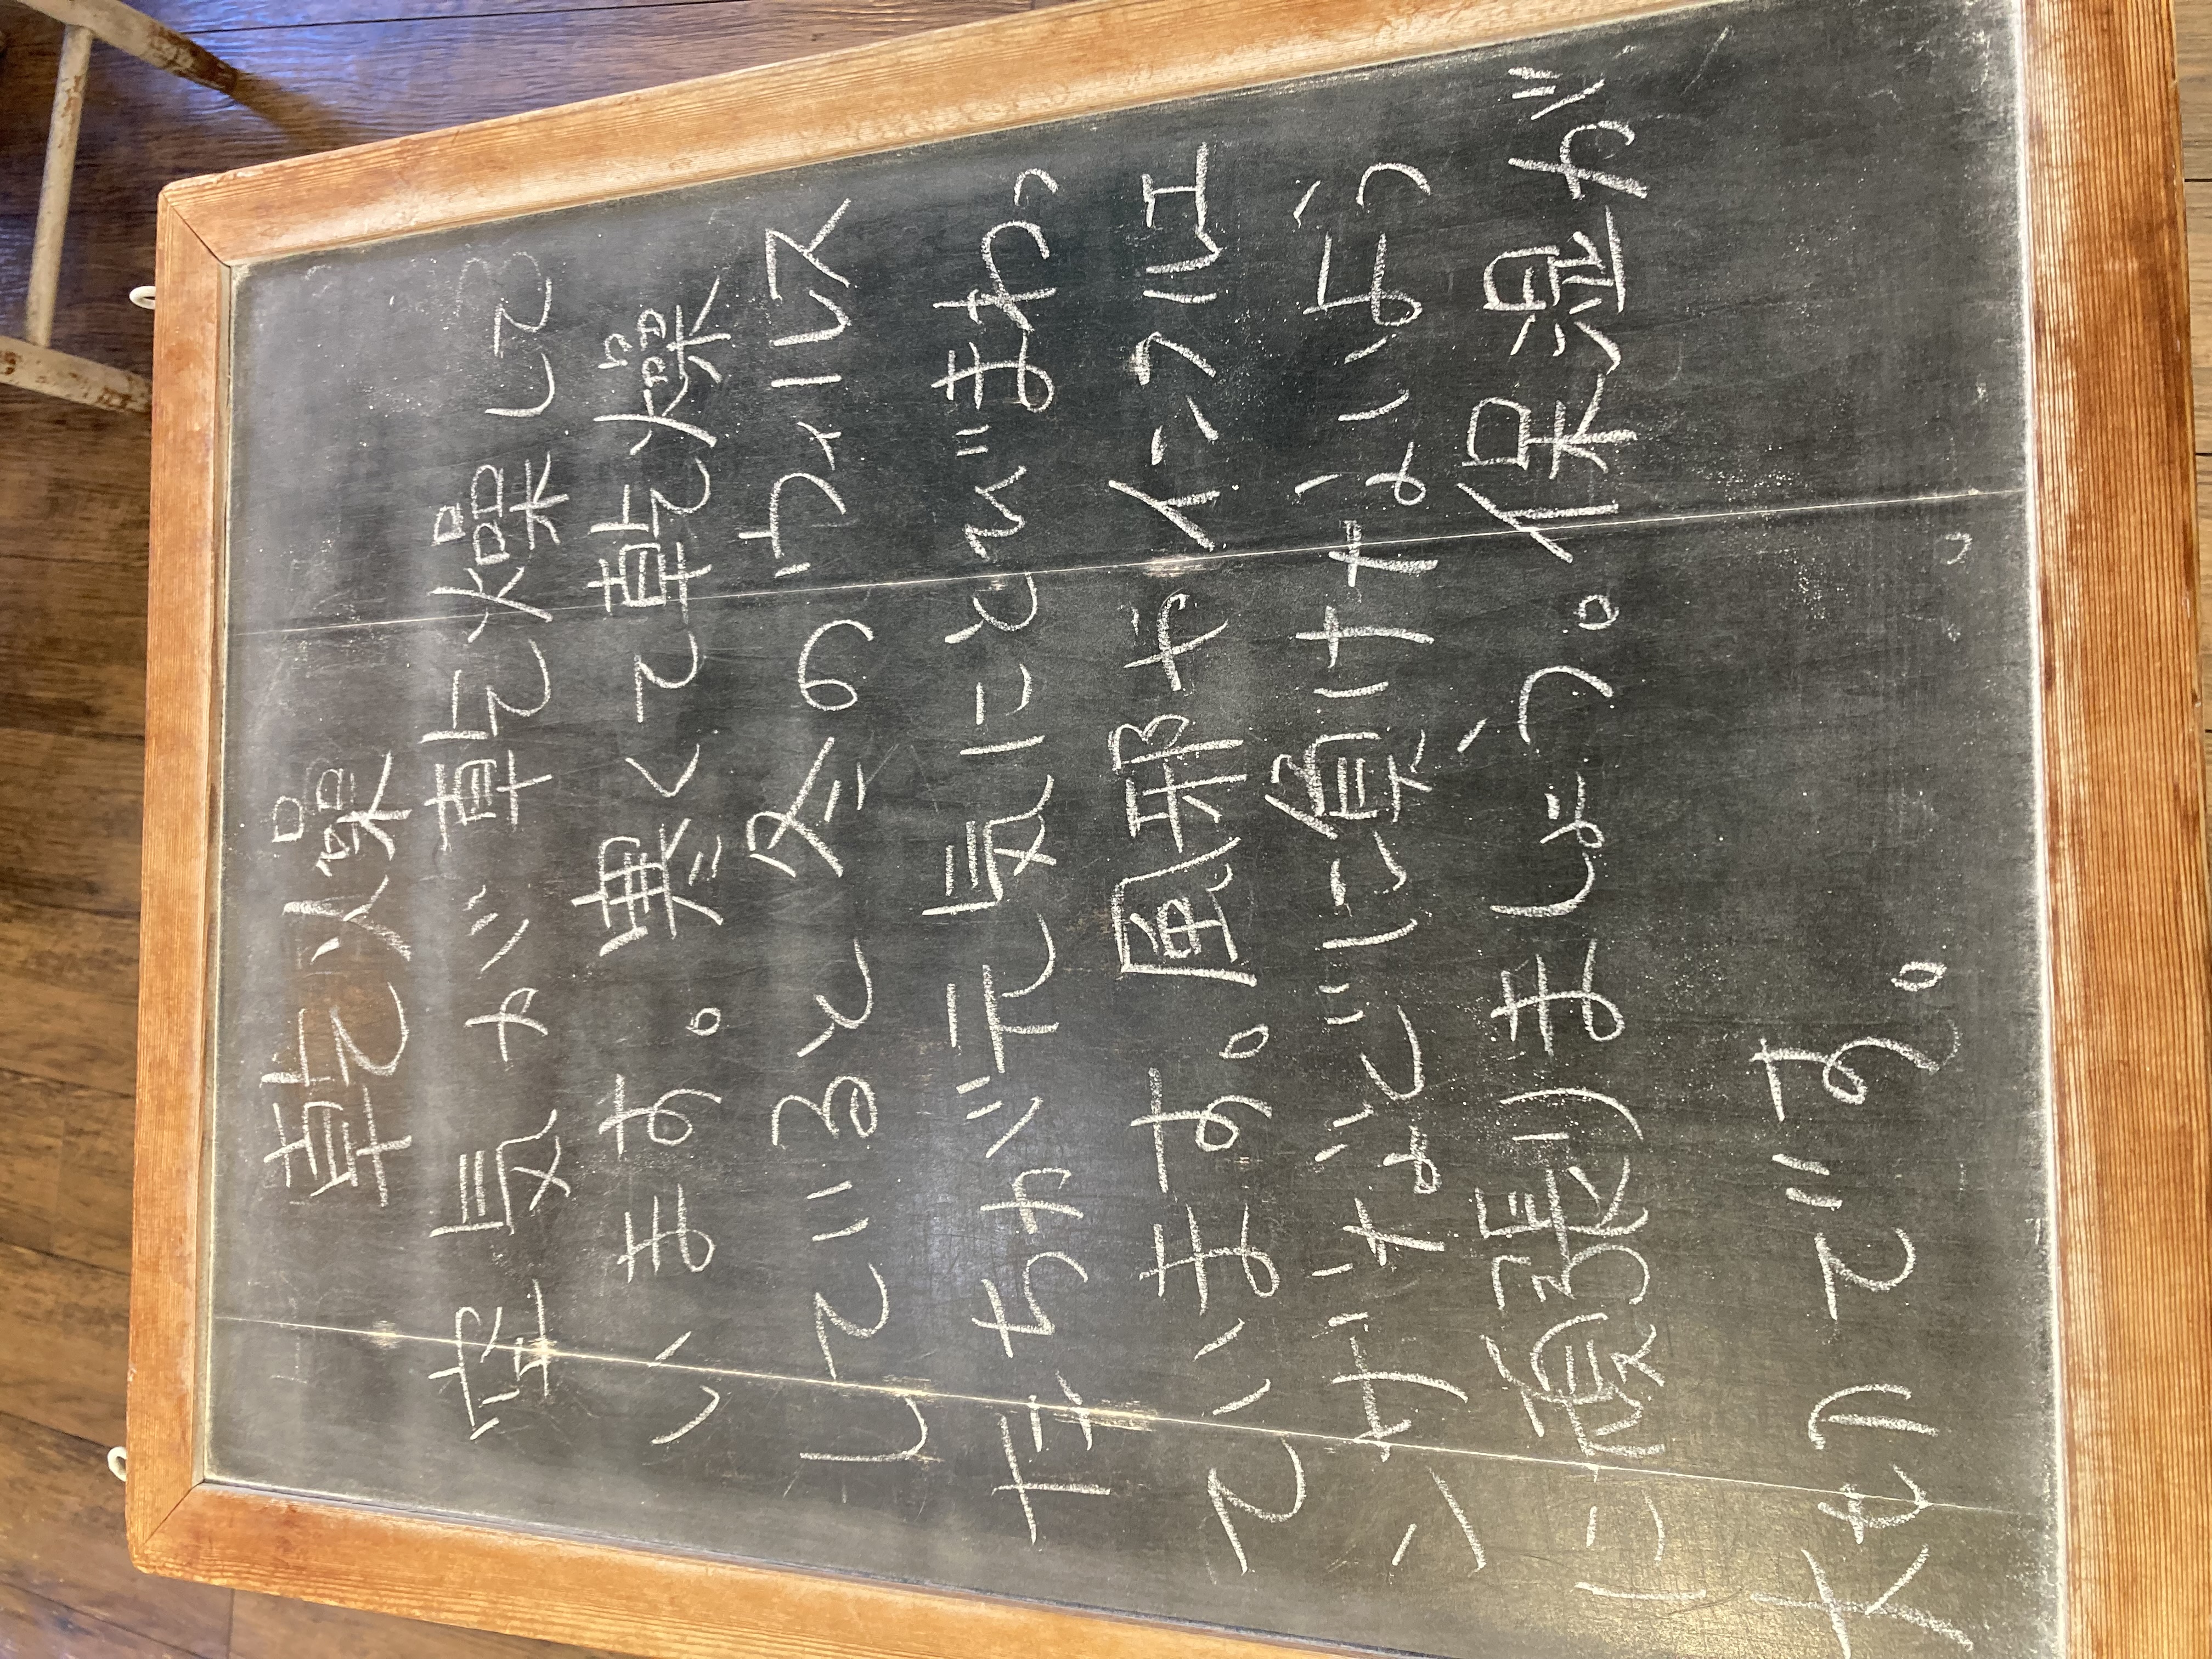 乾燥
空気が乾燥して
います。寒くて乾燥
していると冬のウィルス
たちが元気にとびまわっ
ています。風邪やインフルエ
ンザなどに負けないよう
に頑張りましょう。保湿が
大切です。